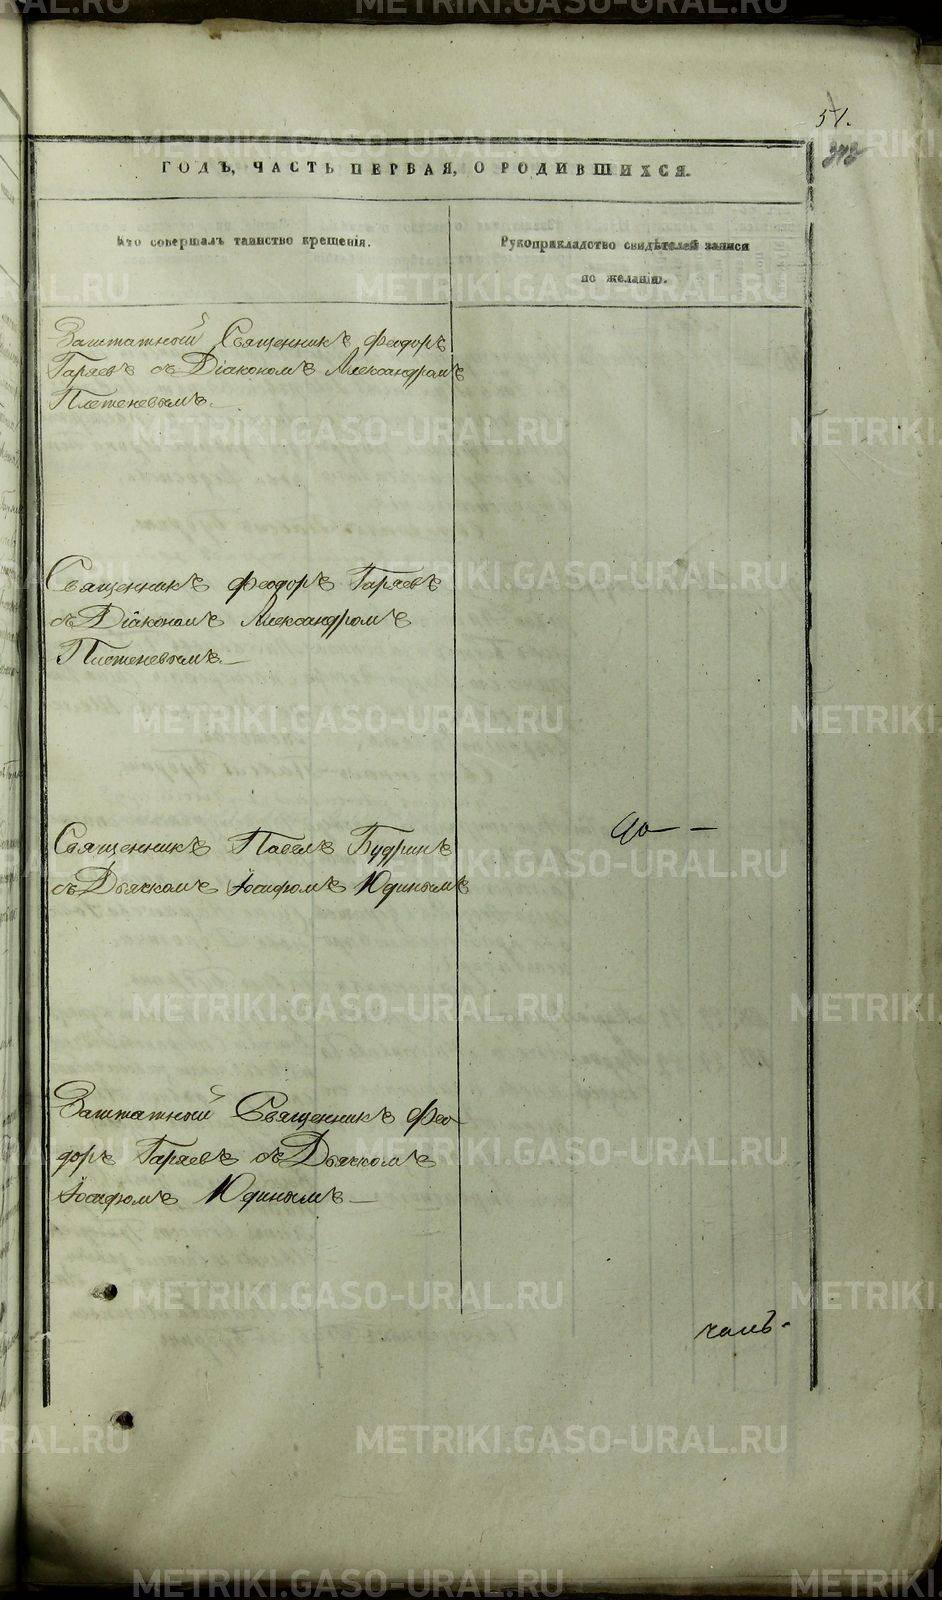 51.
ГОДЪ, ЧАСТЬ ПЕРВАЯ, О РОДИВШИХСЯ.
Кто совершалъ таинство крещенія.
Рукоприкладство свидѣтелей записи
по желанію.
Заштатной Священникъ Феодоръ
Гаряевъ съ Діакономъ Александромъ
Плетеневымъ.
Священникъ Феодоръ Гаряевъ
съ Діакономъ Александромъ
Плетеневымъ.
Священникъ Павелъ Будринъ
съ Дьячкомъ Іосифомъ Юдинымъ
Заштатной Священникъ Фео-
доръ Гаряевъ съ Дьячкомъ
Іосифомъ Юдинымъ
METRIKI.GASO-URAL.RU